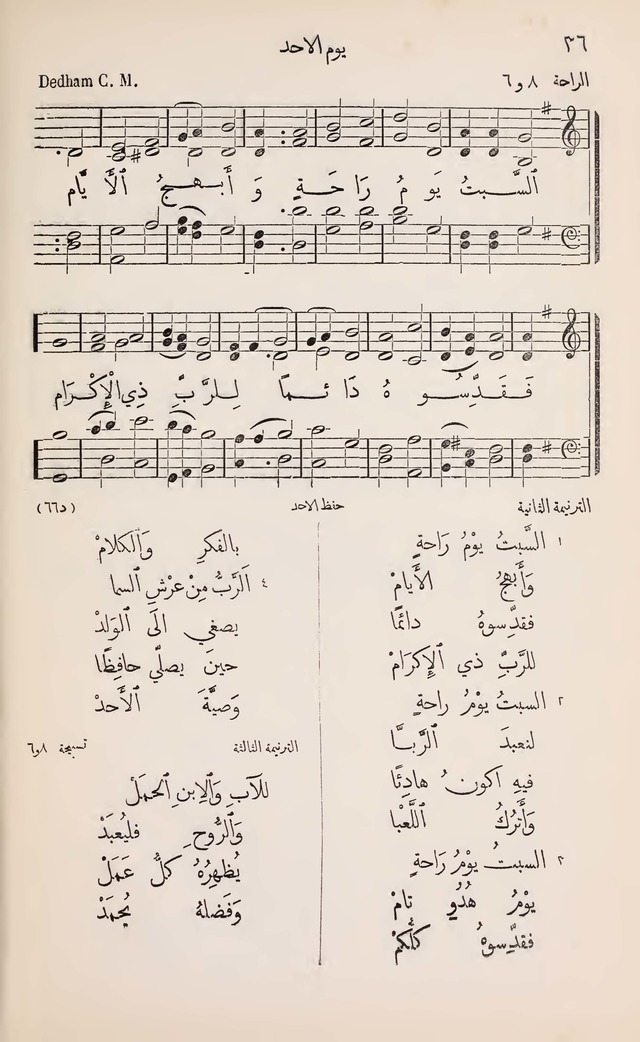 ٣٦
يوم الاحد
الراحة ٨ و ٦
Dedham C. M.
اَلسَّبتُ يَومُ رَاحَةٍ وَأَبهجُ ٱلأَيَّام
فَقَدِّسُوهُ دَائِمًا لِلرَّبِّ ذِي ٱلْإِكْرَام
الترنيمة الثانية
حفظ الاحد
(د٦٦)
١ السَّبتُ يَوْمُ رَاحةٍ
وَأَبهجُ الأَيامْ
فقدِّسوهُ دائمًا
للرَّبِّ ذي الإِكرَامْ
٢ السبتُ يوْمُ راحةٍ
لنعبدَ ٱلرَّبا
فيهِ اكونُ هادِئًا
وَأَترُكُ ٱللَّعْبا
٣ السبتُ يوْمُ رَاحةٍ
يوْمُ هُدُوٍ تامْ
فقدِّسوهُ كلُّكمْ
بالفكرِ وَٱلكلامْ
٤ اَلرَّبُّ مِنْ عرْشِ ٱلسما
يصغي الَى ٱلوَلدْ
حينَ يصلّي حافِظًا
وَصيَّةَ ٱلأَحدْ
الترنيمة الثالثة
تسبحة ٨ و٦
للآبِ وَٱلاِبنِ ٱلحملْ
وَٱلرُّوحِ فليُعبَدْ
يُظهِرُهُ كلُّ عَمَلْ
وَفَضلهُ يُحمَدْ